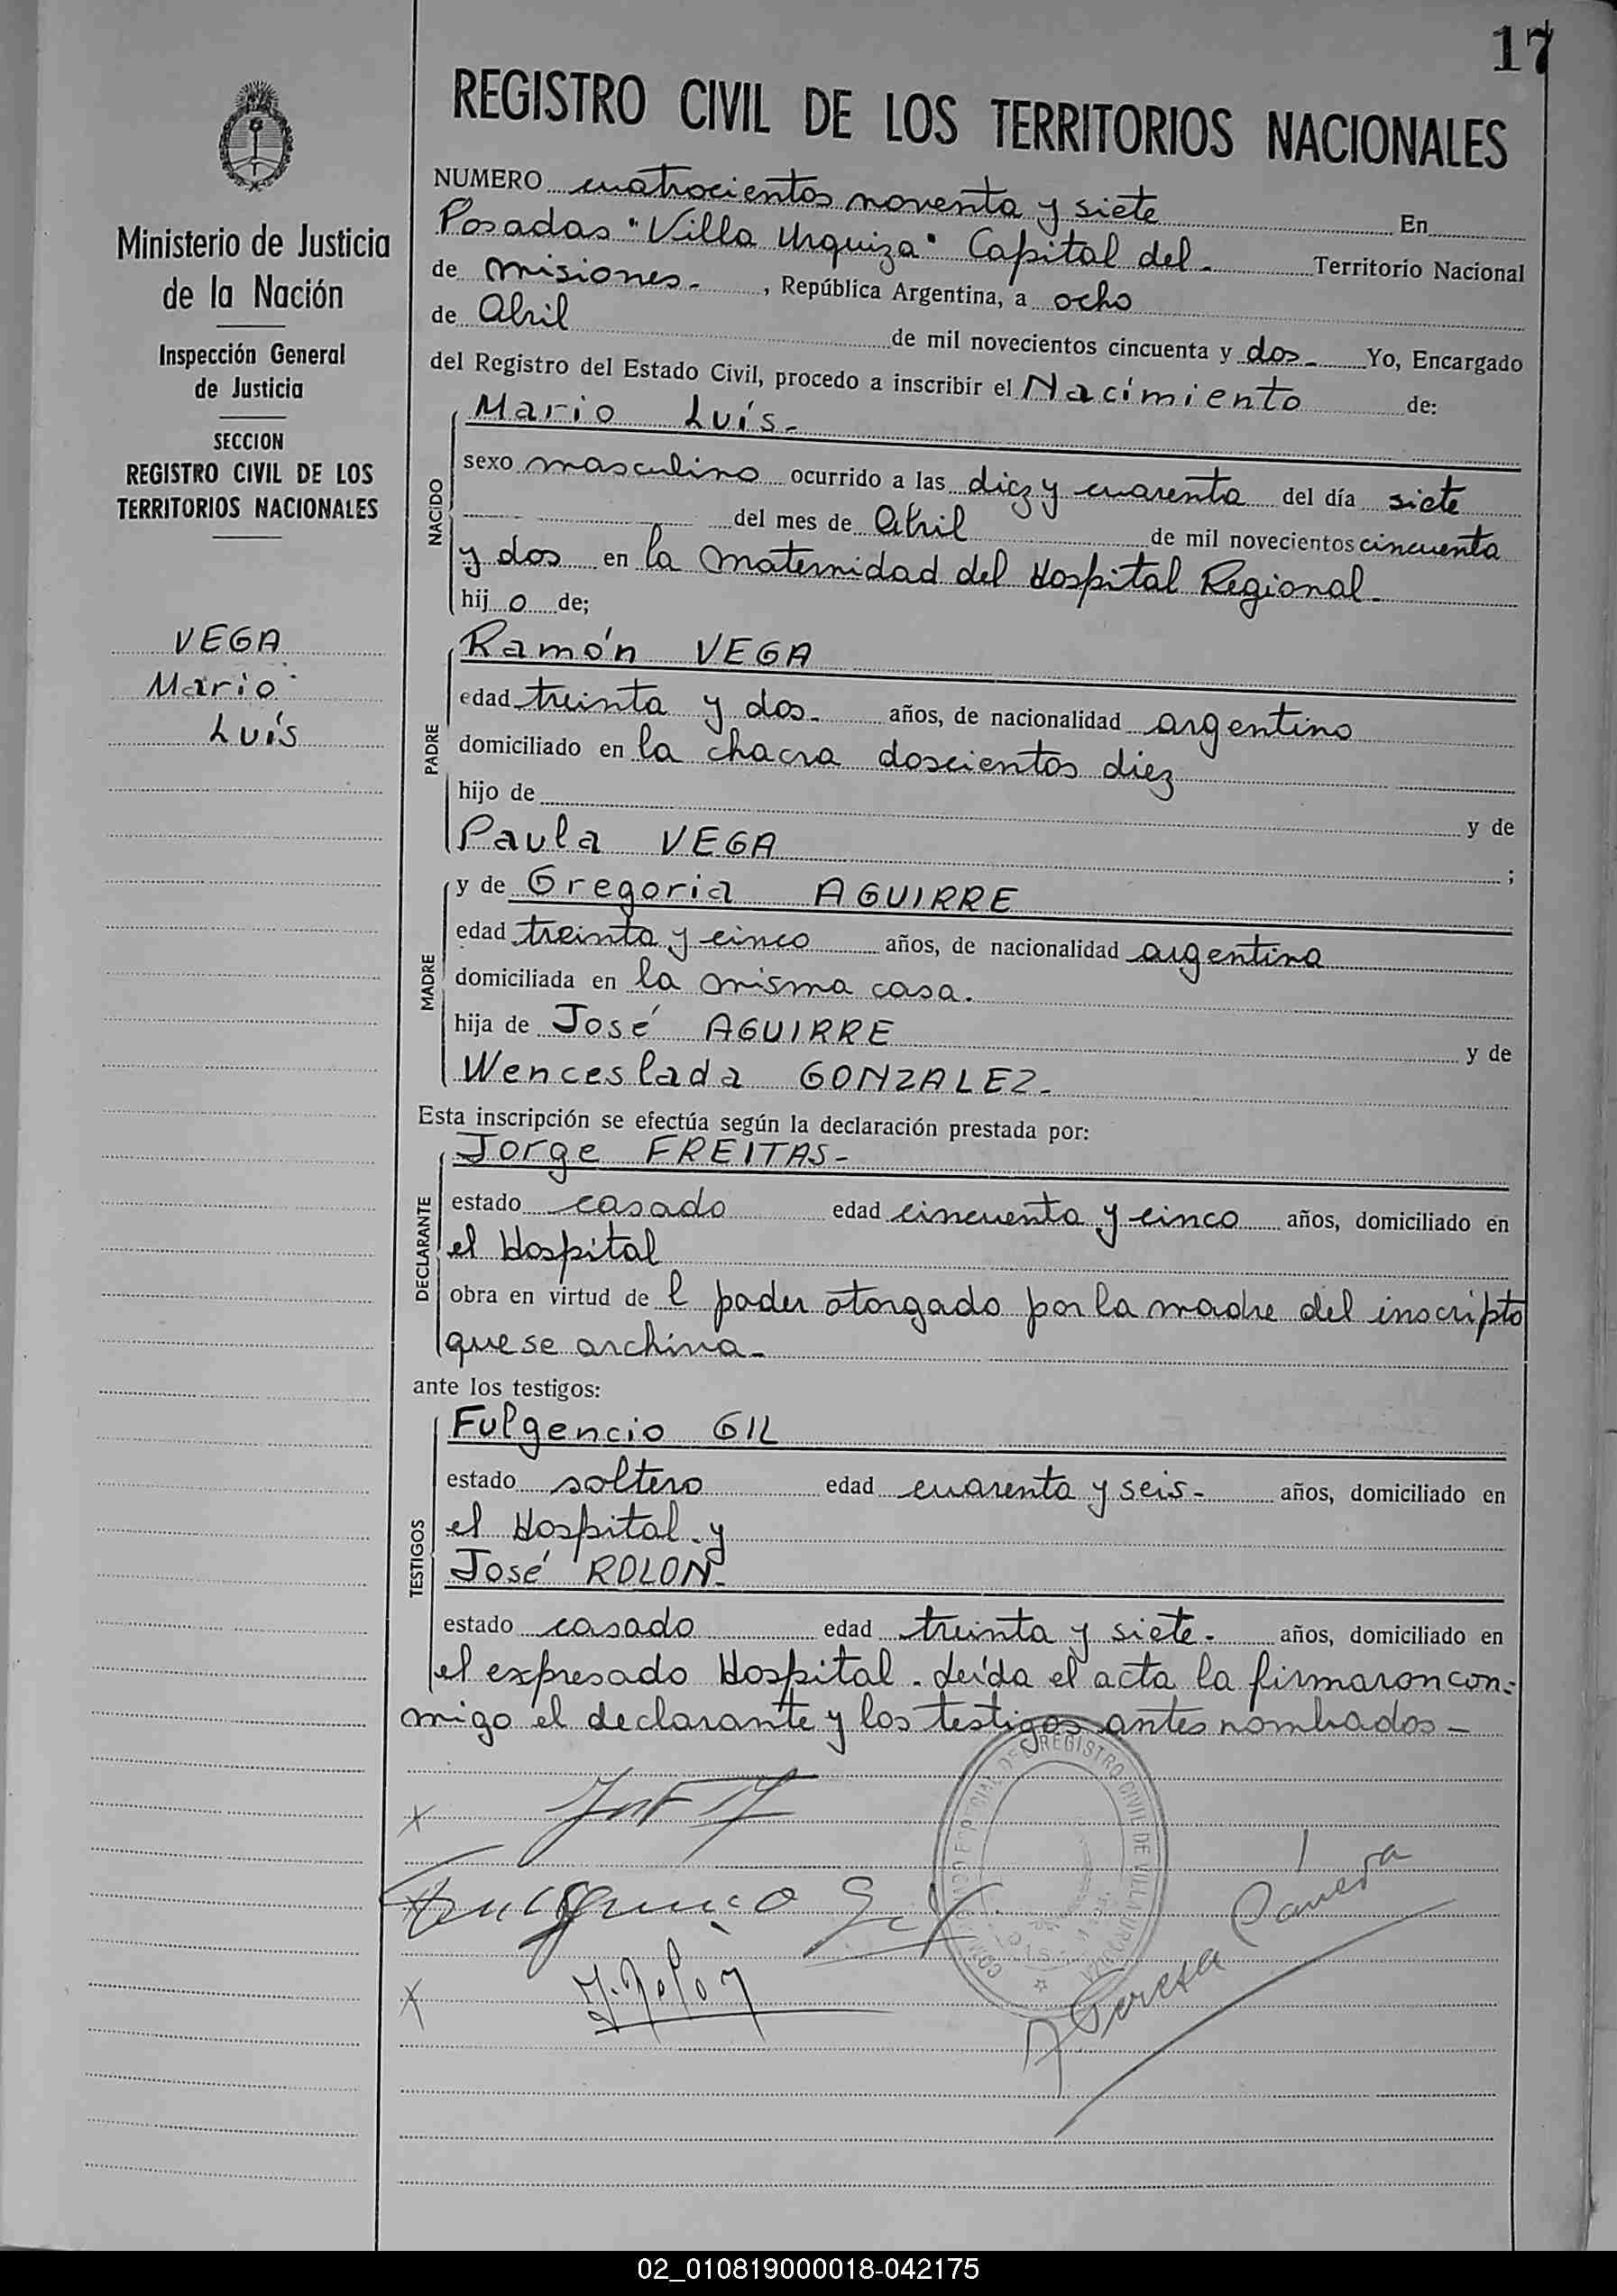 17
REGISTRO CIVIL DE LOS TERRITORIOS NACIONALES
Ministerio de Justicia
de la Nación
Inspección General
de Justicia
SECCION
REGISTRO CIVIL DE LOS
TERRITORIOS NACIONALES
VEGA
Mario
Luís
NUMERO cuatrocientos noventa y siete En
Posadas "Villa Urquiza" Capital del - Territorio Nacional
de misiones - , República Argentina, a ocho
de Abril de mil novecientos cincuenta y dos - Yo, Encargado
del Registro del Estado Civil, procedo a inscribir el Nacimiento de:
NACIDO
Mario Luís -
sexo masculino ocurrido a las diez y cuarenta del día siete
del mes de Abril de mil novecientos cincuenta
y dos en la maternidad del Hospital Regional -
hij o de;
PADRE
Ramón VEGA
edad treinta y dos - años, de nacionalidad argentino
domiciliado en la chacra doscientos diez
hijo de y de
Paula VEGA ;
MADRE
y de Gregoria AGUIRRE
edad treinta y cinco años, de nacionalidad argentina
domiciliada en la misma casa.
hija de José AGUIRRE y de
Wenceslada GONZALEZ -
Esta inscripción se efectúa según la declaración prestada por:
DECLARANTE
Jorge FREITAS -
estado casado edad cincuenta y cinco años, domiciliado en
el Hospital
obra en virtud de l poder otorgado por la madre del inscripto
que se archiva -
ante los testigos:
TESTIGOS
Fulgencio GIL
estado soltero edad cuarenta y seis - años, domiciliado en
el Hospital y
José ROLON -
estado casado edad treinta y siete - años, domiciliado en
el expresado Hospital. Leída el acta la firmaron con-
migo el declarante y los testigos antes nombrados -
REGISTRO CIVIL DE VILLA URQUIZA
x
x
J. Rolon
x
02_010819000018-042175